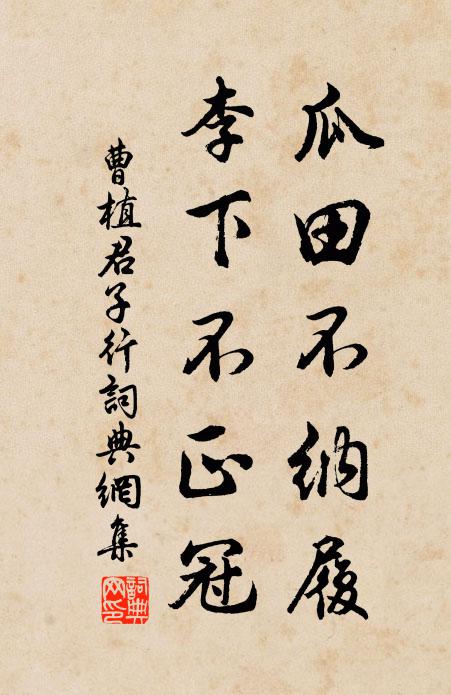 瓜田不納履
李下不正冠
曹植君子行詞典網集
詞典網印